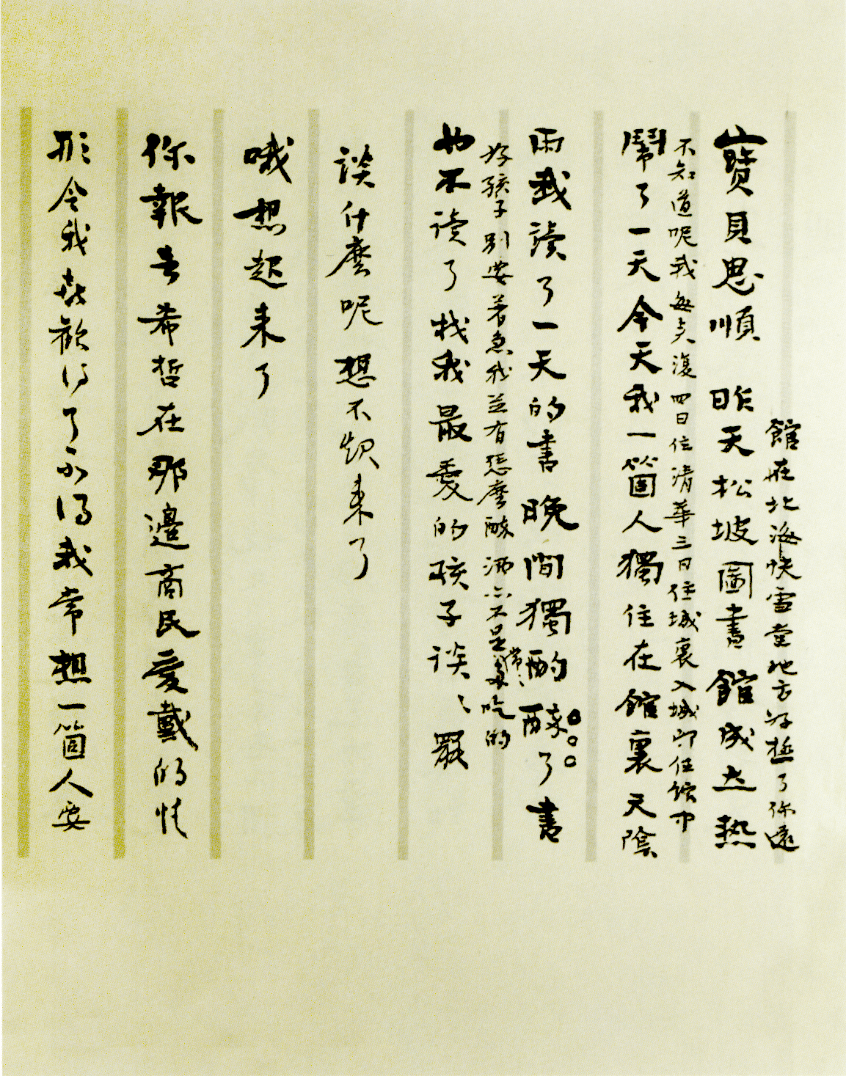 館在北海快雪堂地方好極了你還
寶貝思順 昨天松坡圖書館成立热
不知道呢我每來復四日住清華三日住城裏入城即住館中
鬧了一天今天我一箇人獨住在館裏天陰
雨我讀了一天的書晚間獨酌醉了書
好孩子別要著急我並冇怎麼醉酒亦不是常〻多吃的
也不讀了找我最愛的孩子談〻罷
談什麼呢想不起來了
哦想起來了
你報告希哲在那邊商民愛戴的情
形令我喜歡得了不得我常想一箇人要